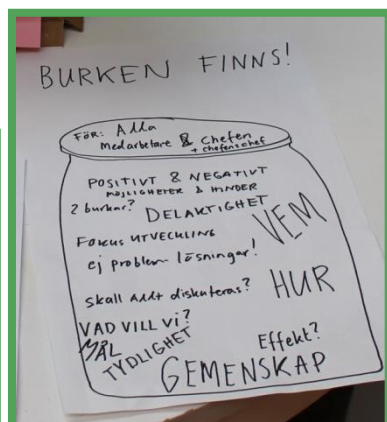 BURKEN FINNS!
FÖR: Alla
medarbetare & chefen
+ chefens chef
POSITIVT & NEGATIVT
MÖJLIGHETER & HINDER
2 burkar? DELAKTIGHET
FOKUS UTVECKLING
VEM
ej problem-lösningar!
HUR
skall allt diskuteras?
VAD VILL Vi?
MÅL
TYDLIGHET
Effekt?
GEMENSKAP